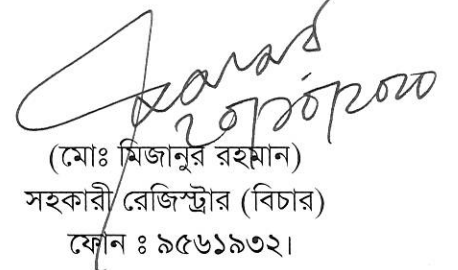 (মোঃ মিজানুর রহমান)
সহকারী রেজিস্ট্রার (বিচার)
ফোন ঃ ৯৫৬১৯৩২।